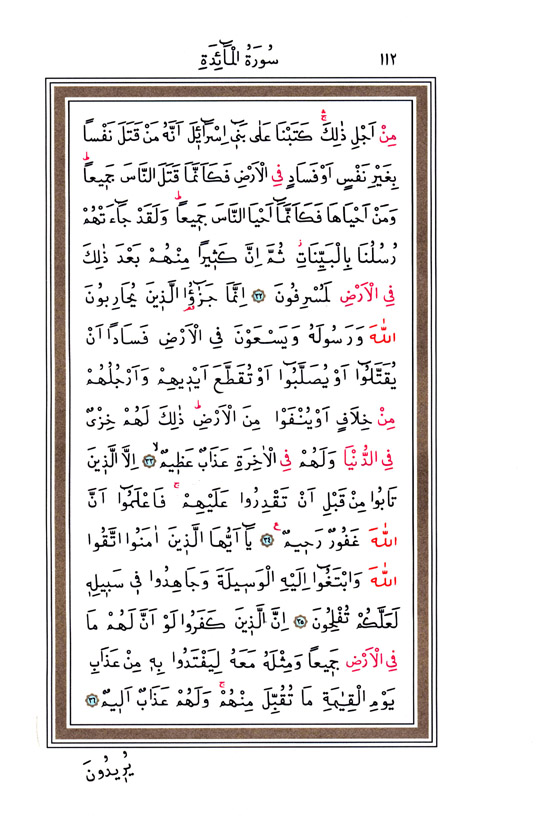 سُورَةُ الْمَٓائِدَةِ
١١٢
مِنْ اَجْلِ ذٰلِكَۚۛ كَتَبْنَا عَلٰى بَنٖٓى اِسْرَٓائٖلَ اَنَّهُ مَنْ قَتَلَ نَفْسًا
بِغَيْرِ نَفْسٍ اَوْ فَسَادٍ فِى الْاَرْضِ فَكَاَنَّمَا قَتَلَ النَّاسَ جَمٖيعًاؕ
وَمَنْ اَحْيَاهَا فَكَاَنَّمَٓا اَحْيَا النَّاسَ جَمٖيعًاؕ وَلَقَدْ جَٓاءَتْهُمْ
رُسُلُنَا بِالْبَيِّنَاتِؗ ثُمَّ اِنَّ كَثٖيرًا مِنْهُمْ بَعْدَ ذٰلِكَ
فِى الْاَرْضِ لَمُسْرِفُونَ ﴿٣٢﴾ اِنَّمَا جَزٰٓؤُا الَّذٖينَ يُحَارِبُونَ
اللّٰهَ وَرَسُولَهُ وَيَسْعَوْنَ فِى الْاَرْضِ فَسَادًا اَنْ
يُقَتَّلُٓوا اَوْ يُصَلَّبُٓوا اَوْ تُقَطَّعَ اَيْدٖيهِمْ وَاَرْجُلُهُمْ
مِنْ خِلَافٍ اَوْ يُنْفَوْا مِنَ الْاَرْضِؕ ذٰلِكَ لَهُمْ خِزْىٌ
فِى الدُّنْيَا وَلَهُمْ فِى الْاٰخِرَةِ عَذَابٌ عَظٖيمٌۙ ﴿٣٣﴾ اِلَّا الَّذٖينَ
تَابُوا مِنْ قَبْلِ اَنْ تَقْدِرُوا عَلَيْهِمْۚ فَاعْلَمُٓوا اَنَّ
اللّٰهَ غَفُورٌ رَحٖيمٌࣖ ﴿٣٤﴾ يَٓا اَيُّهَا الَّذٖينَ اٰمَنُوا اتَّقُوا
اللّٰهَ وَابْتَغُٓوا اِلَيْهِ الْوَسٖيلَةَ وَجَاهِدُوا فٖى سَبٖيلِهٖ
لَعَلَّكُمْ تُفْلِحُونَ ﴿٣٥﴾ اِنَّ الَّذٖينَ كَفَرُوا لَوْ اَنَّ لَهُمْ مَا
فِى الْاَرْضِ جَمٖيعًا وَمِثْلَهُ مَعَهُ لِيَفْتَدُوا بِهٖ مِنْ عَذَابِ
يَوْمِ الْقِيٰمَةِ مَا تُقُبِّلَ مِنْهُمْۚ وَلَهُمْ عَذَابٌ اَلٖيمٌ ﴿٣٦﴾
يُرٖيدُونَ